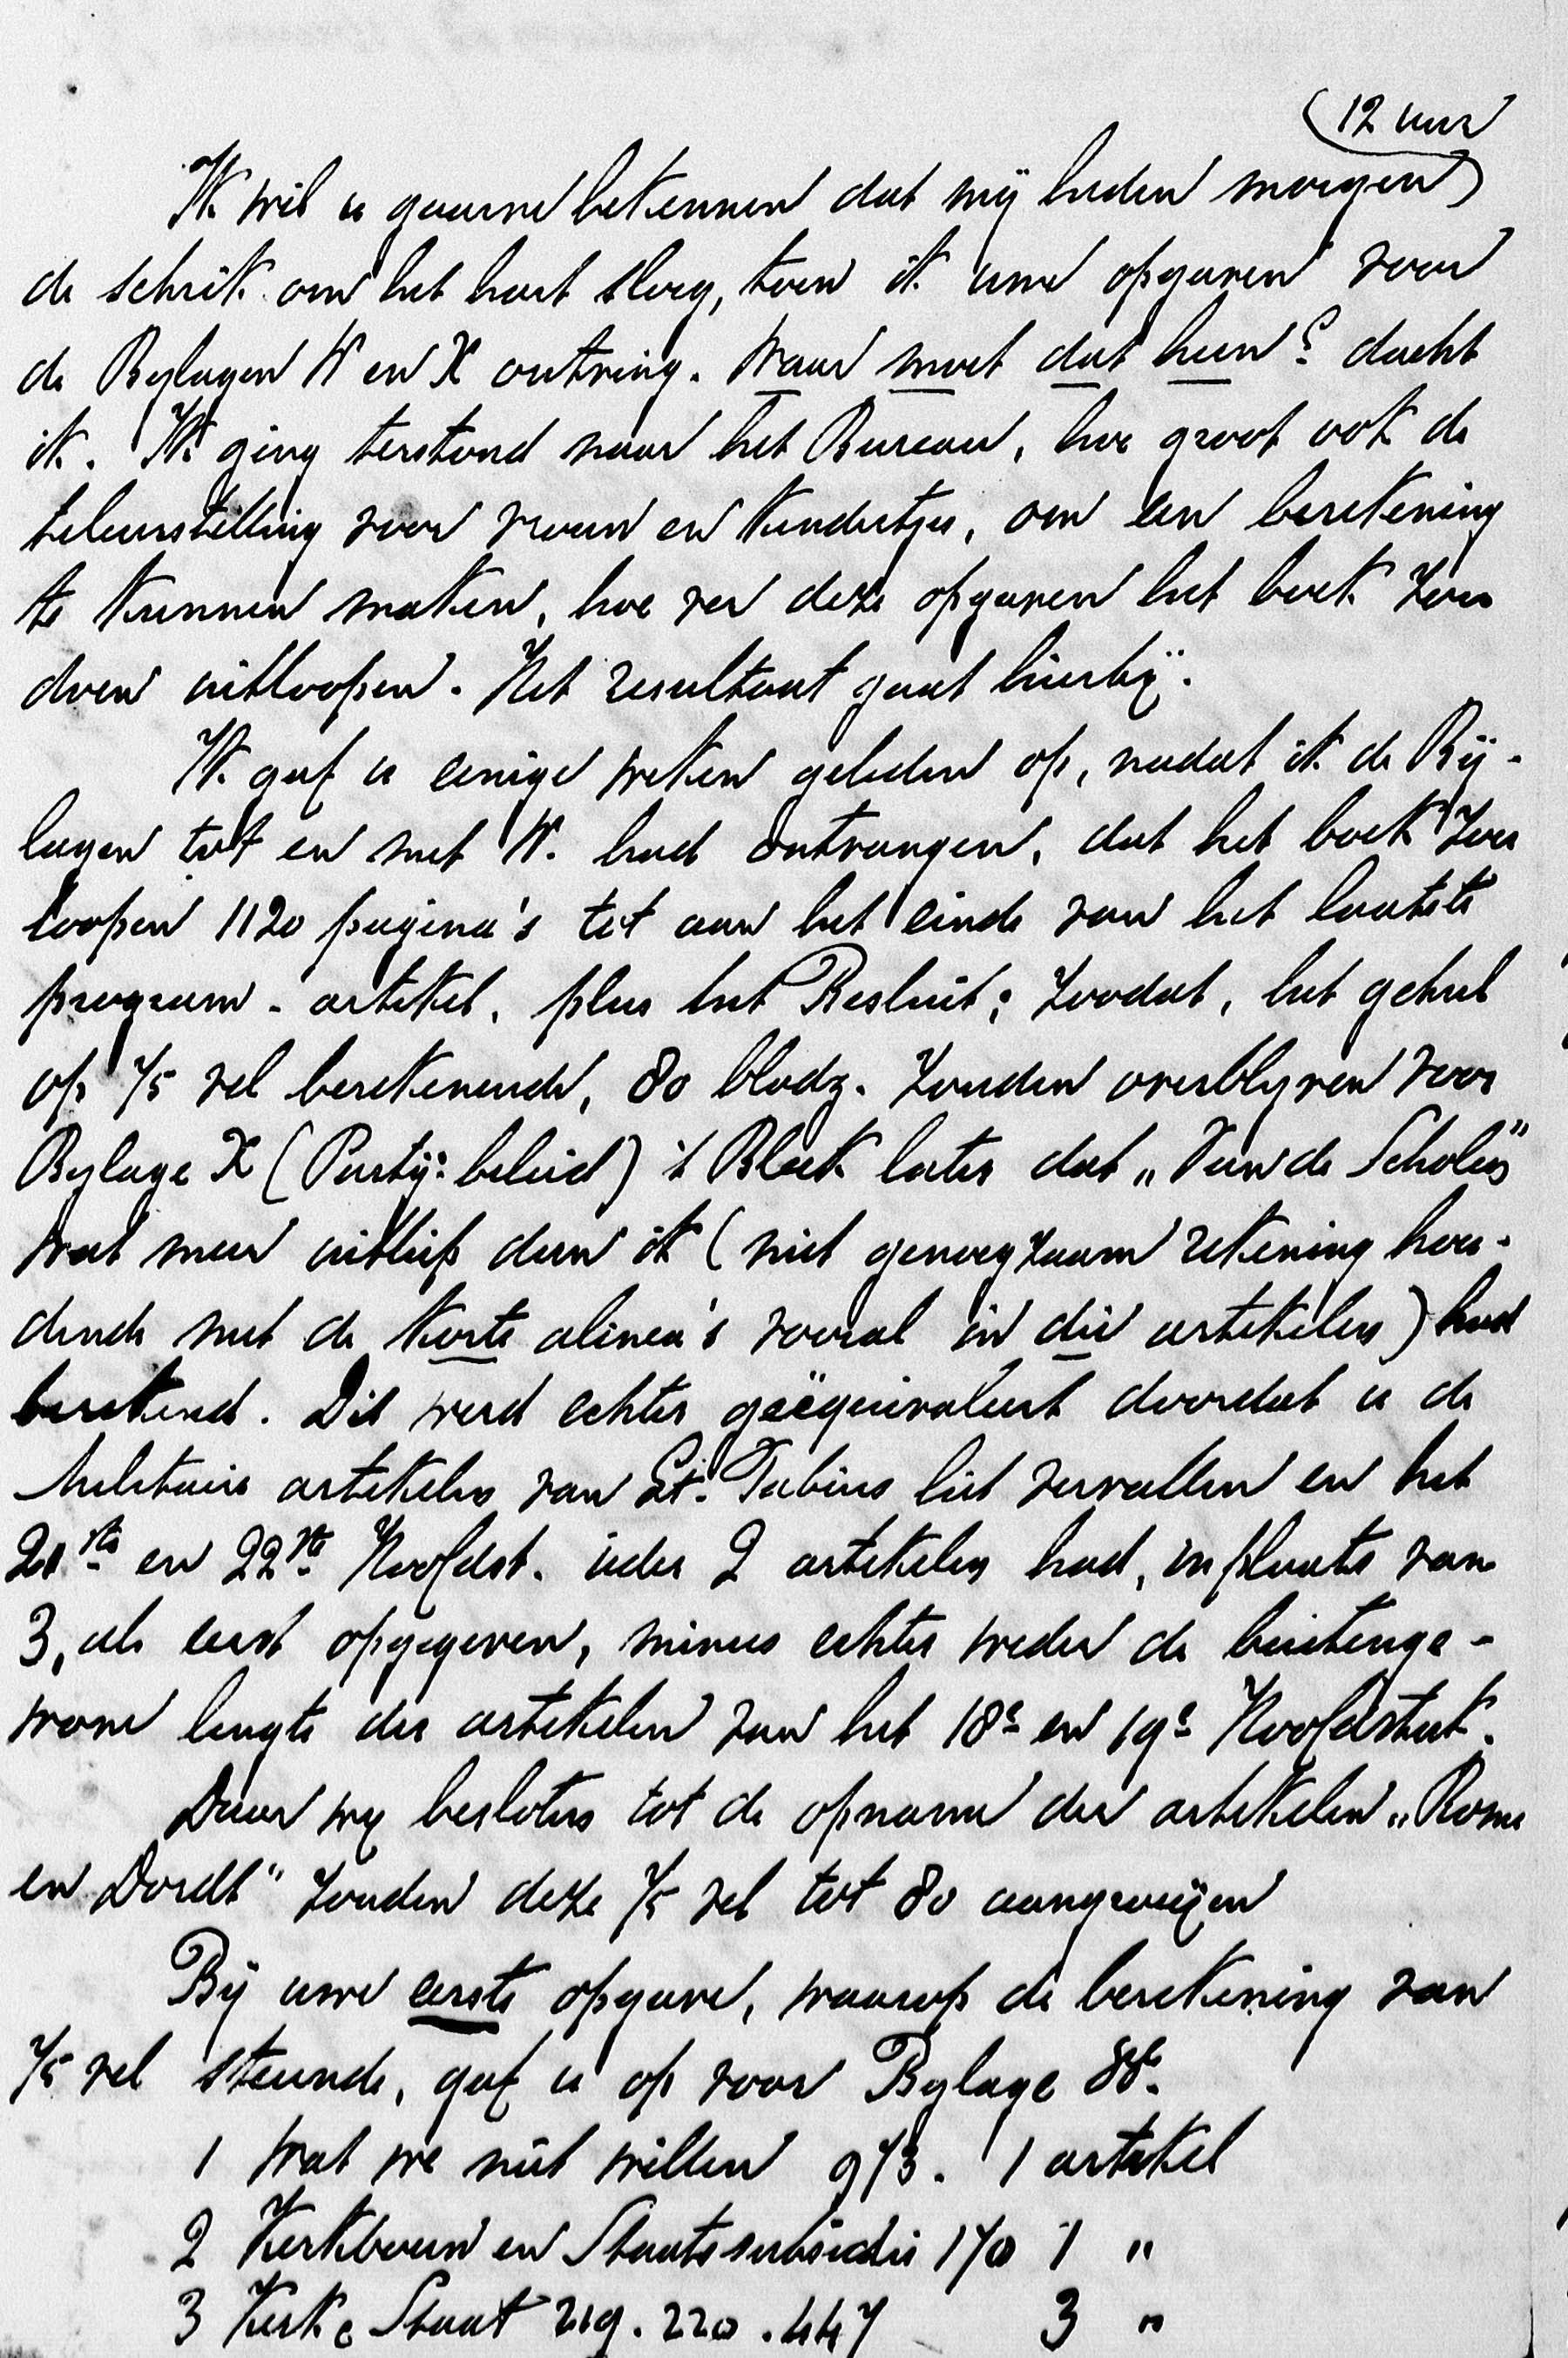 (12 uur
Ik wil u gaarne bekennen dat mij heden morgen)
de schrik om het hart sloeg, toen ik uwe opgaven voor
de Bylagen W en X ontving. Waar moet dat heen? dacht
ik. Ik ging terstond naar het Bureau, hoe groot ook de
teleurstelling voor vrouw en kindertjes, om een berekening
te kunnen maken, hoe ver deze opgaven het boek zou
doen uitloopen. Het resultaat gaat hierbij.
Ik gaf u eenige weken geleden op, nadat ik de Bij-
lagen tot en met W. had ontvangen, dat het boek zou
loopen 1120 pagina's tot aan het einde van het laatste
program-artikel, plus het Besluit; zoodat, het geheel
op 75 vel berekenende, 80 bladz. zouden overblyven voor
Bylage X (Partij-beleid) 't Bleek later dat „Van de Scholen"
wat meer uitliep dan ik (niet genoegzaam rekening hou-
dende met de korte alinea's vooral in die artikelen) had
berekend. Dit werd echter geëquivaleert doordat u de
Militaire artikelen van Lt. Tabius liet vervallen en het
21ste en 22ste Hoofdst. ieder 2 artikelen had, in plaats van
3, als eerst opgegeven, minus echter weder de buitenge-
wone lengte der artikelen van het 18e en 19e Hoofdstuk.
Daar wy besloten tot de opname der artikelen „Rome
en Dordt" zouden deze 75 vel tot 80 aangroeijen
Bij uwe eerste opgave, waarop de berekening van
75 vel steunde, gaf u op voor Bylage
1 Wat we niet willen 973. 1 artikel
2 Kerkbouw en Staatssubsidie 170 1 "
3 Kerk e Staat 219. 220. 447 3 "